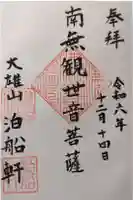 奉拝
令和六年
十二月十四日
南無観世音菩薩
大雄山
泊船軒